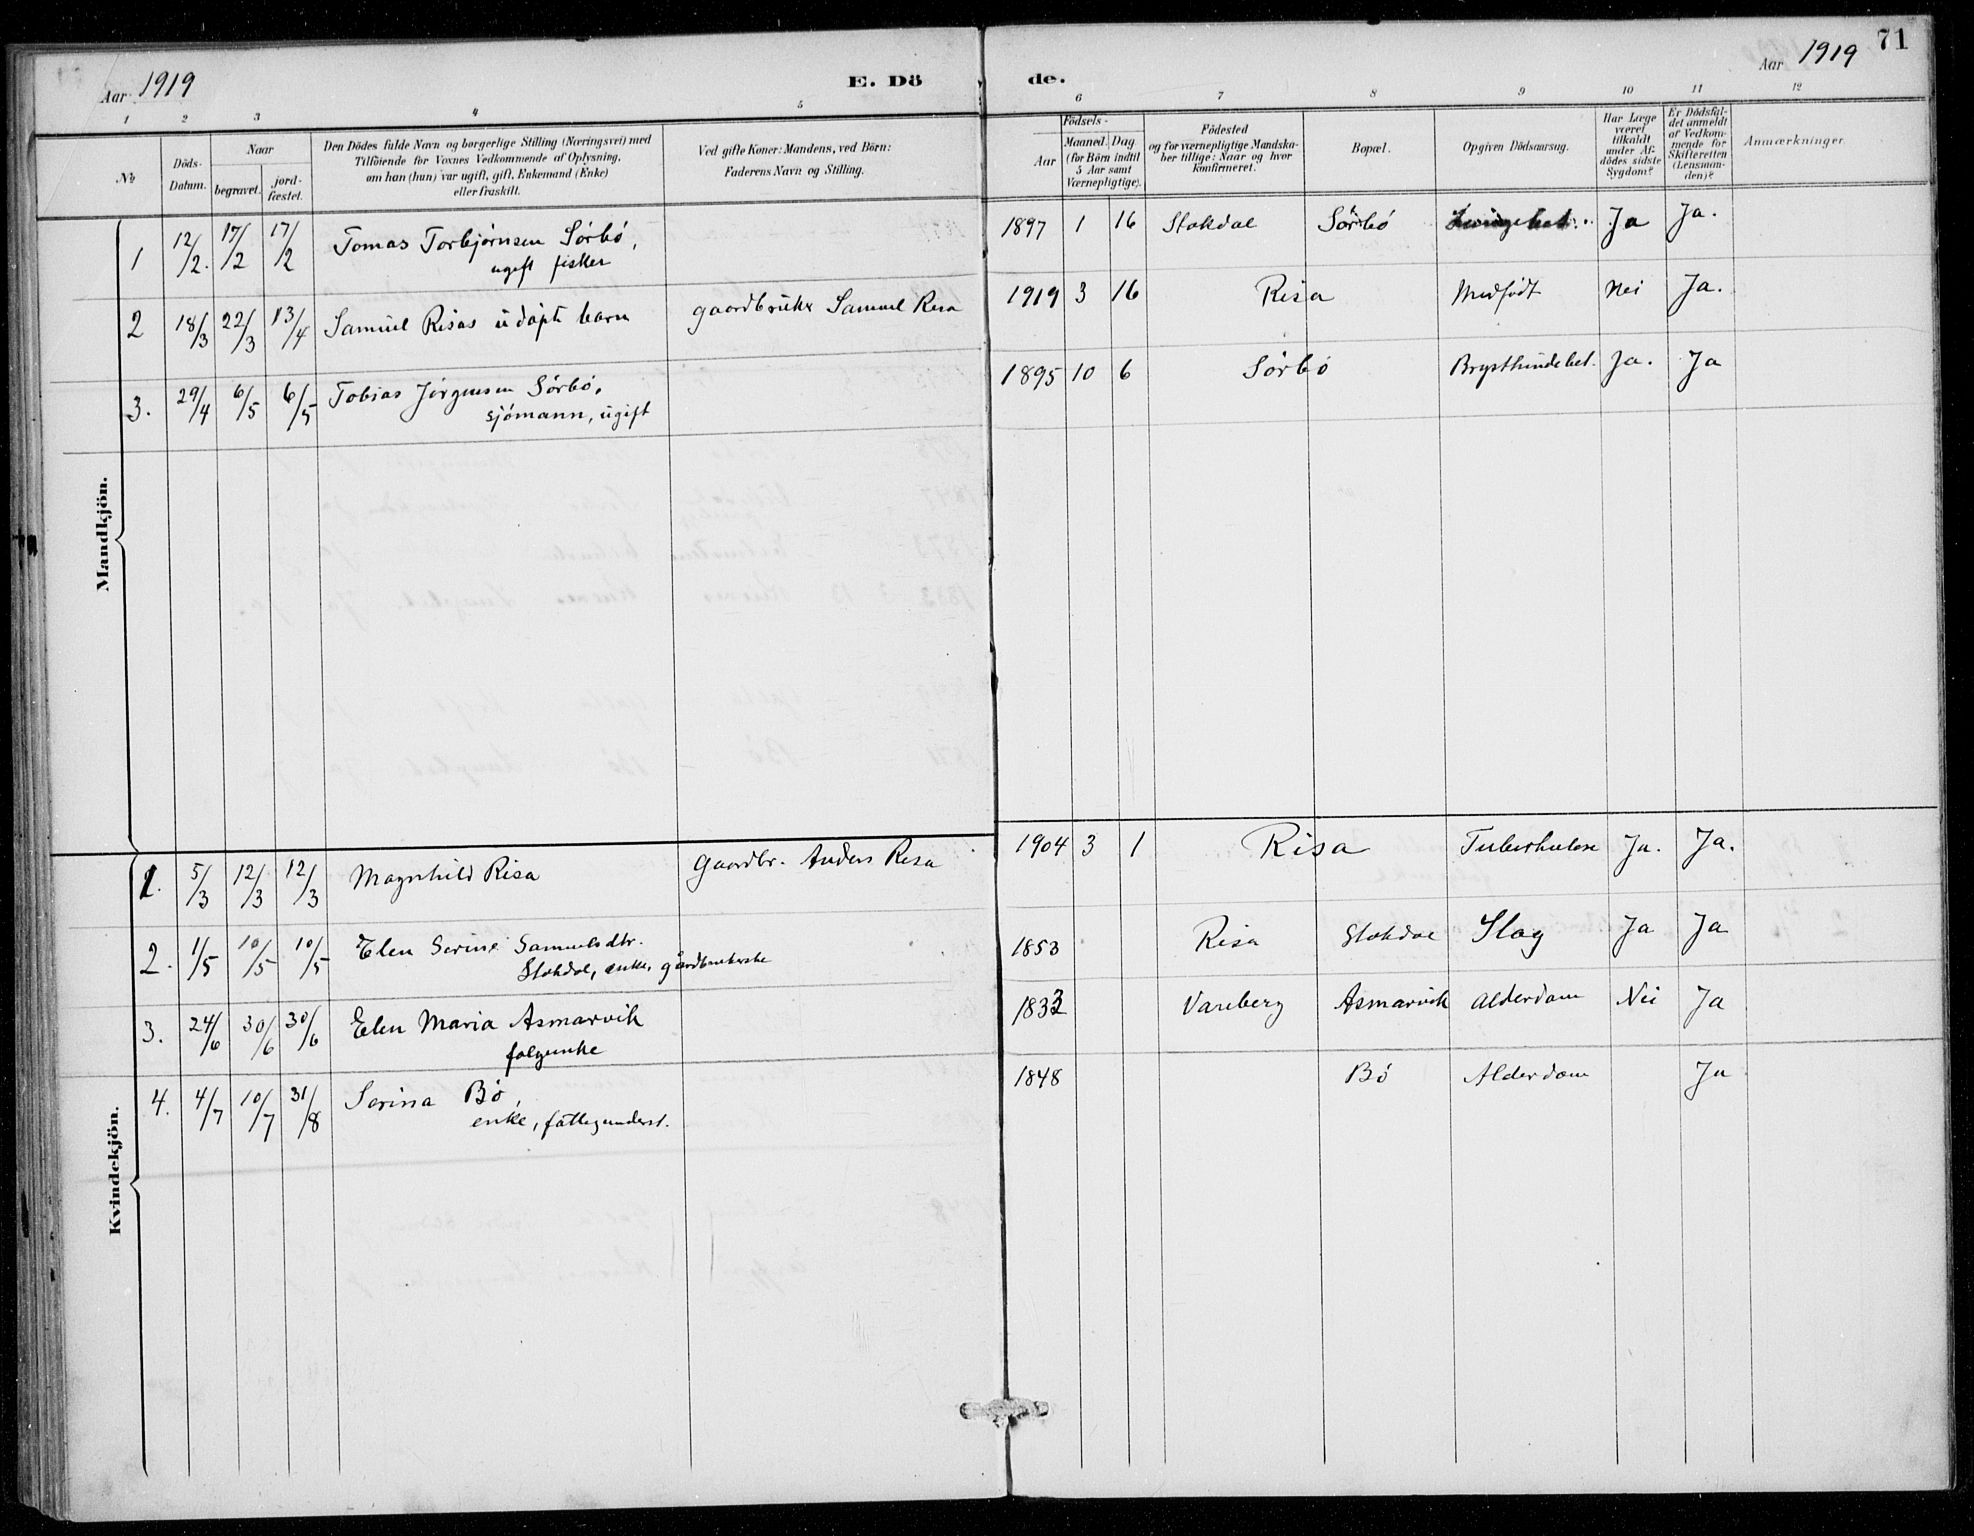 Aar 1919
E. Dö
de.
Aar 1919
71
1 2 3 4 5 6 7 8 9 10 11 12
№
Döds-Datum.
Naar
begravet.
jord-fæstet.
Den Dödes fulde Navn og borgerlige Stilling (Næringsvei) med
Tilföiende for Voxnes Vedkommende af Oplysning,
om han (hun) var ugift, gift, Enkemand (Enke)
eller fraskilt.
Ved gifte Koner: Mandens, ved Börn:
Faderens Navn og Stilling.
Födsels-
Aar
Maaned. Dag
(for Börn indtil
5 Aar samt
Værnepligtige).
Födested
og for værnepligtige Mandska-
ber tillige: Naar og hvor
konfirmeret.
Bopæl.
Opgiven Dödsaarsag.
Har Læge
været
tilkaldt
under Af-
dödes sidste
Sygdom?
Er Dödsfal-
det anmeldt
af Vedkom-
mende for
Skifteretten
(Lensman-
den)?
Anmærkninger.
Mandkjön.
1 12/2. 17/2 17/2 Tomas Torbjørnsen Sörbö, 1897 1 16 Stokdal Sörbö Ja Ja.
ugift fisker
2 18/3 22/3 13/4 Samuel Risas udøpt barn gaardbruker Samuel Risa 1919 3 16 Risa Medfödt Nei Ja.
3. 29/4 6/5 6/5 Tobias Jörgensen Sörbö, 1895 10 6 Sörbö Brysthindebet. Ja. Ja
sjömann, ugift
Kvindekjön.
1. 5/3 12/3 12/3 Magnhild Risa Gaardbr. Anders Risa 1904 3 1 Risa Tuberkulose Ja. Ja.
2. 1/5 10/5 10/5 Elen Serine Samuelsdtr. 1853 Risa Stokdal Slag Ja Ja
Stokdal, enke, gårdbrukerske
3. 24/6 30/6 30/6 Elen Maria Asmarvik 1833 Vareberg Asmarvik Alderdom Nei Ja
folgeenke
4. 4/7 10/7 31/8 Serina Bö, 1848 Bö Alderdom Ja
enke, fattigunderst.